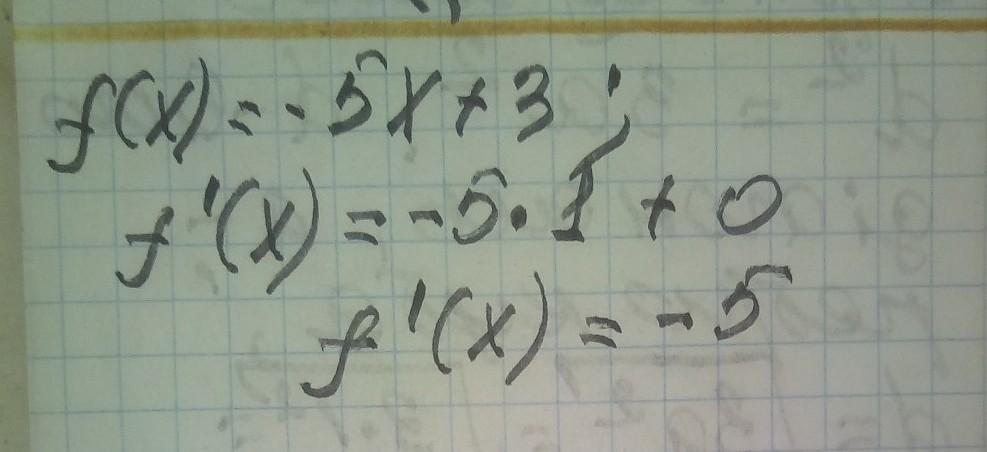 f(x) = -5x + 3 ;
f'(x) = -5 · 1 + 0
f'(x) = -5